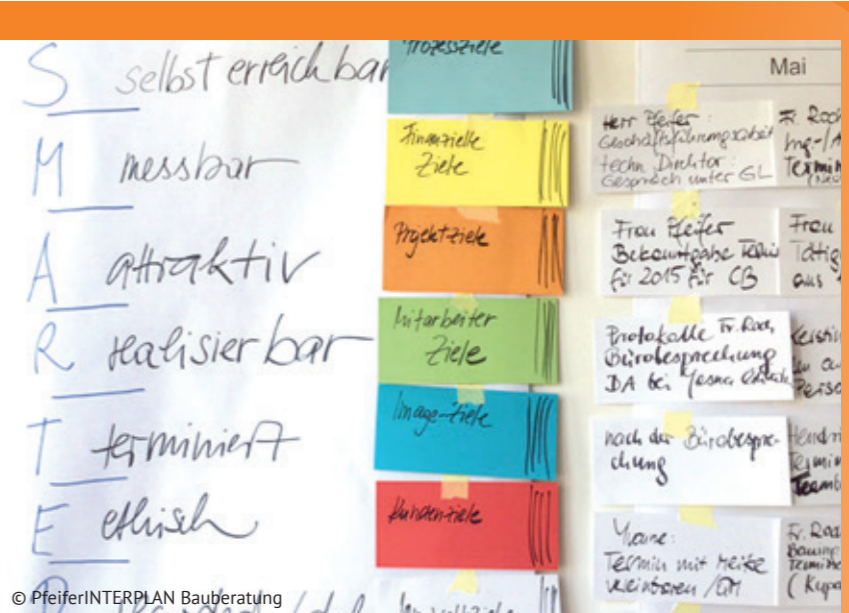 S selbst erreichbar
M messbar
A attraktiv
R realisierbar
T terminiert
E ethisch
R
Prozessziele
Finanzielle
Ziele
Projektziele
Mitarbeiter
Ziele
Image-Ziele
Kundenziele
Mai
Herr Pfeifer:
Geschäftsführungsarbeit
techn. Direktor:
Gespräch unter GL
Frau Pfeifer
Bekanntgabe
für 2015 für CB
Protokolle Fr. Roch,
Bürobesprechung
DA bei
nach der Bürobespre-
chung
Termin mit Heike
vereinbaren /QM
Fr. Roch
Termin
Frau
Tätig
aus
Termin
Fr. Roch
Termine
© PfeiferINTERPLAN Bauberatung